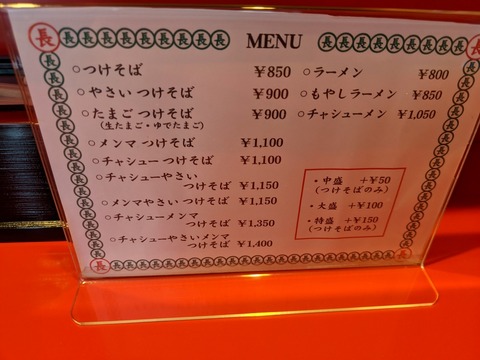 長 長長長長長長長長長 MENU 長長長長長長長長長 長
○つけそば ¥850
○やさい つけそば ¥900
○たまご つけそば ¥900
(生たまご・ゆでたまご)
○メンマ つけそば ¥1,100
○チャシュー つけそば ¥1,100
○チャシューやさい
つけそば ¥1,150
○メンマやさい つけそば ¥1,150
○チャシューメンマ
つけそば ¥1,350
○チャシューやさいメンマ
つけそば ¥1,400
○ラーメン ¥800
○もやしラーメン ¥850
○チャシューメン ¥1,050
・中盛 +¥50
(つけそばのみ)
・大盛 +¥100
・特盛 +¥150
(つけそばのみ)